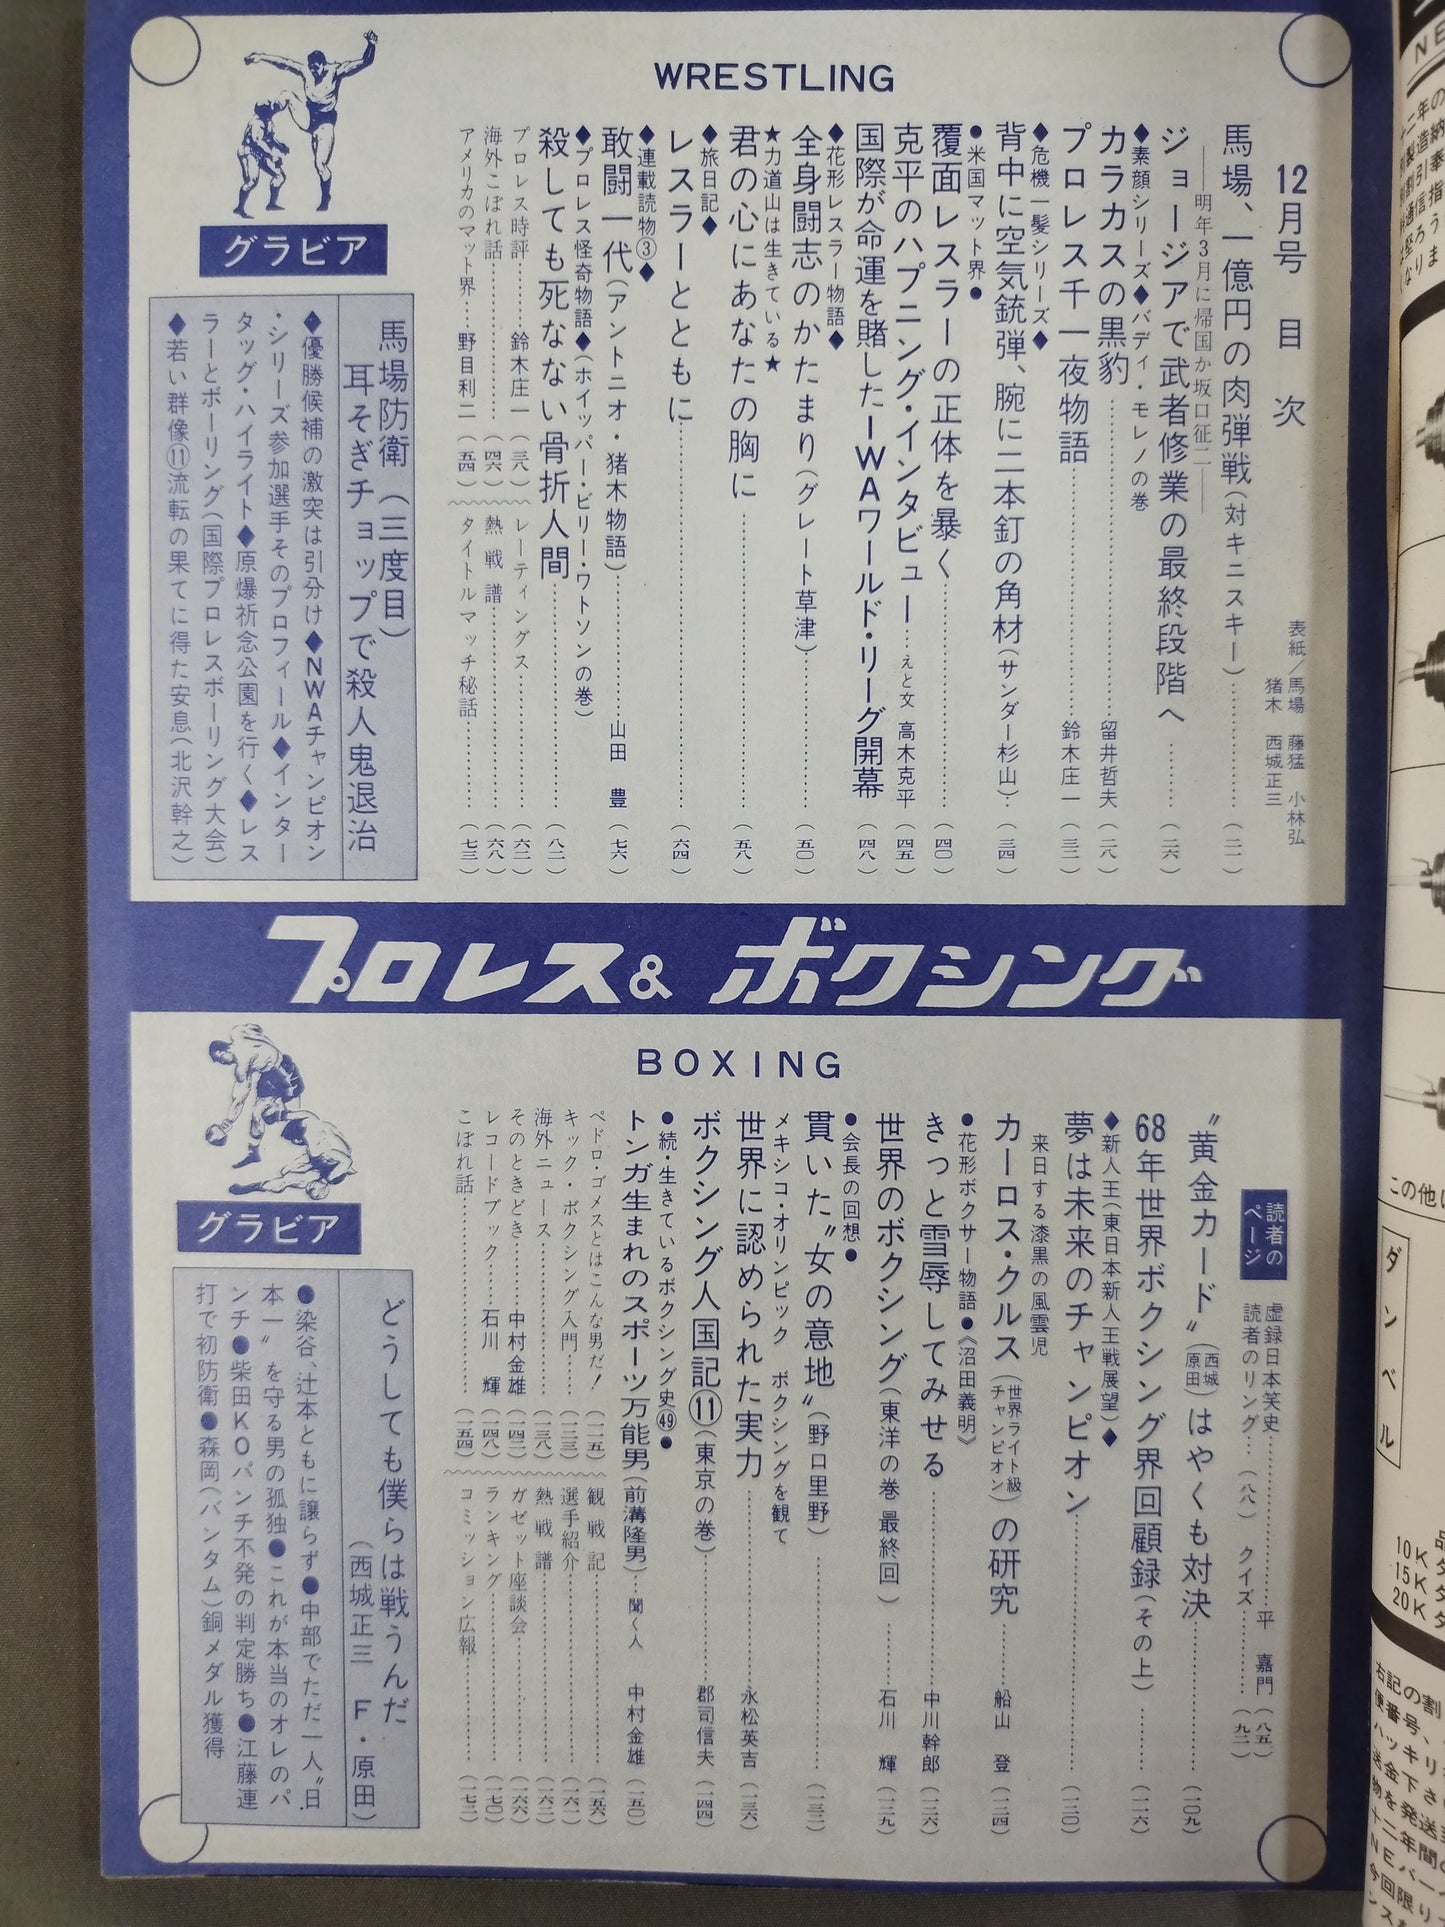 WRESTLING
12月号 目次
表紙／馬場 藤猛 小林弘
猪木 西城正三
馬場、一億円の肉弾戦(対キニスキー)…………(二一)
ジョージアで武者修業の最終段階へ…………(二六)
――明年3月に帰国か坂口征二――
◆素顔シリーズ◆バディ・モレノの巻
カラカスの黒豹…………留井哲夫(二八)
プロレス千一夜物語…………鈴木庄一(三二)
◆危機一髪シリーズ◆
背中に空気銃弾、腕に二本釘の角材(サンダー杉山)…(三四)
●米国マット界●
覆面レスラーの正体を暴く…………(四〇)
克平のハプニング・インタビュー……えと文 高木克平(四五)
国際が命運を賭したIWAワールド・リーグ開幕(四八)
◆花形レスラー物語◆
全身闘志のかたまり(グレート草津)…………(五〇)
★力道山は生きている★
君の心にあなたの胸に…………(五八)
◆旅日記◆
レスラーとともに…………(六四)
◆連載読物③◆
敢闘一代(アントニオ・猪木物語)…………山田 豊(七六)
◆プロレス怪奇物語◆(ホイッパー・ビリー・ワトソンの巻)
殺しても死なない骨折人間…………(八二)
プロレス時評………鈴木庄一(三八)
レーティングス…………(六二)
海外こぼれ話…………(四六)
熱戦譜…………(六八)
アメリカのマット界…野目利二(五四)
タイトルマッチ秘話…………(七三)
グラビア
馬場防衛(三度目)
耳そぎチョップで殺人鬼退治
◆優勝候補の激突は引分け◆NWAチャンピオン
・シリーズ参加選手そのプロフィール◆インター
タッグ・ハイライト◆原爆祈念公園を行く◆レス
ラーとボーリング(国際プロレスボーリング大会)
◆若い群像⑪流転の果てに得た安息(北沢幹之)
プロレス&ボクシング
BOXING
読者のページ
虚録日本笑史…………平 嘉門(八五)
読者のリング…(八八) クイズ…………(九二)
〝黄金カード〟(西城 原田)はやくも対決…………(一〇九)
68年世界ボクシング界回顧録(その上)…………(一一六)
◆新人王(東日本新人王戦展望)◆
夢は未来のチャンピオン…………(一二〇)
来日する漆黒の風雲児
カーロス・クルス(世界ライト級チャンピオン)の研究…………船山 登(一二四)
●花形ボクサー物語●《沼田義明》
きっと雪辱してみせる…………中川幹郎(一二六)
世界のボクシング(東洋の巻 最終回)…………石川 輝(一二九)
●会長の回想●
貫いた〝女の意地〟(野口里野)…………(一三二)
メキシコ・オリンピック ボクシングを観て
世界に認められた実力…………永松英吉(一三六)
ボクシング人国記⑪(東京の巻)…………郡司信夫(一四四)
●続・生きているボクシング史㊾●
トンガ生まれのスポーツ万能男(前溝隆男)…聞く人 中村金雄(一五〇)
ペドロ・ゴメスとはこんな男だ！(一一五)
観戦記…………(一五六)
キック・ボクシング入門……(一二三)
選手紹介…………(一六一)
海外ニュース…………(一三八)
熱戦譜…………(一六二)
そのときどき………中村金雄(一四二)
ガゼット座談会…………(一六六)
レコードブック……石川 輝(一四八)
ランキング…………(一七〇)
こぼれ話…………(一五四)
コミッション広報…………(一七二)
グラビア
どうしても僕らは戦うんだ
(西城正三 F・原田)
●染谷、辻本ともに譲らず●中部でただ一人〝日
本一〟を守る男の孤独●これが本当のオレのパ
ンチ●柴田KOパンチ不発の判定勝ち●江藤連
打で初防衛●森岡(バンタム)銅メダル獲得
この他に
ダンベル
10K
15K
20K